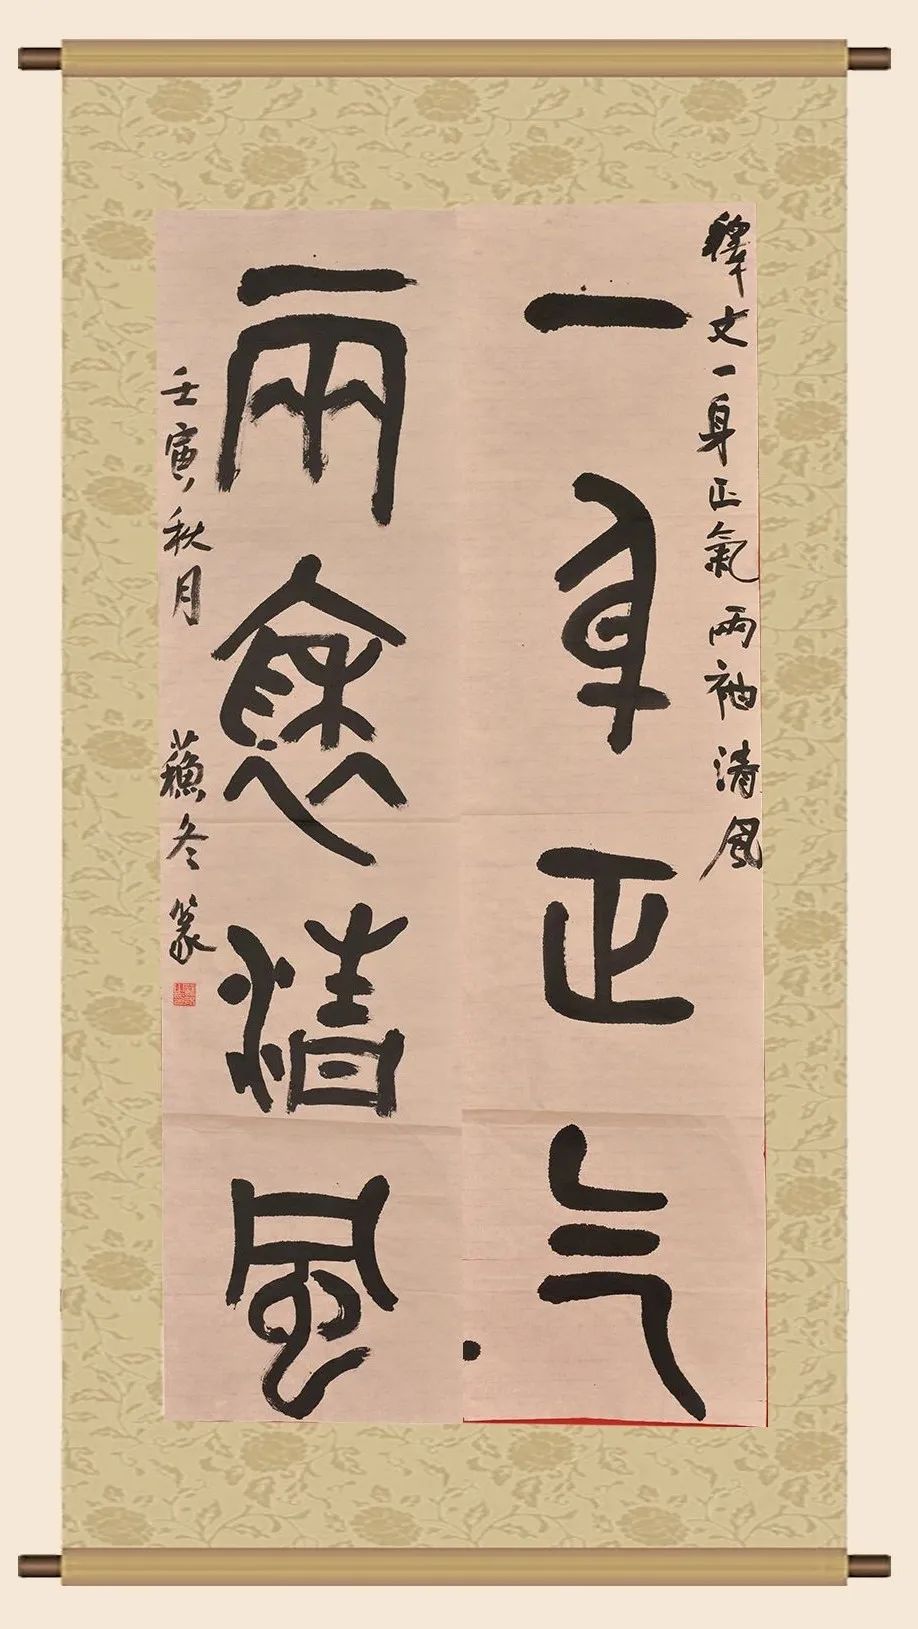 釋文一身正氣兩袖清風
一身正气
兩褎清風
壬寅秋月 蘓冬篆